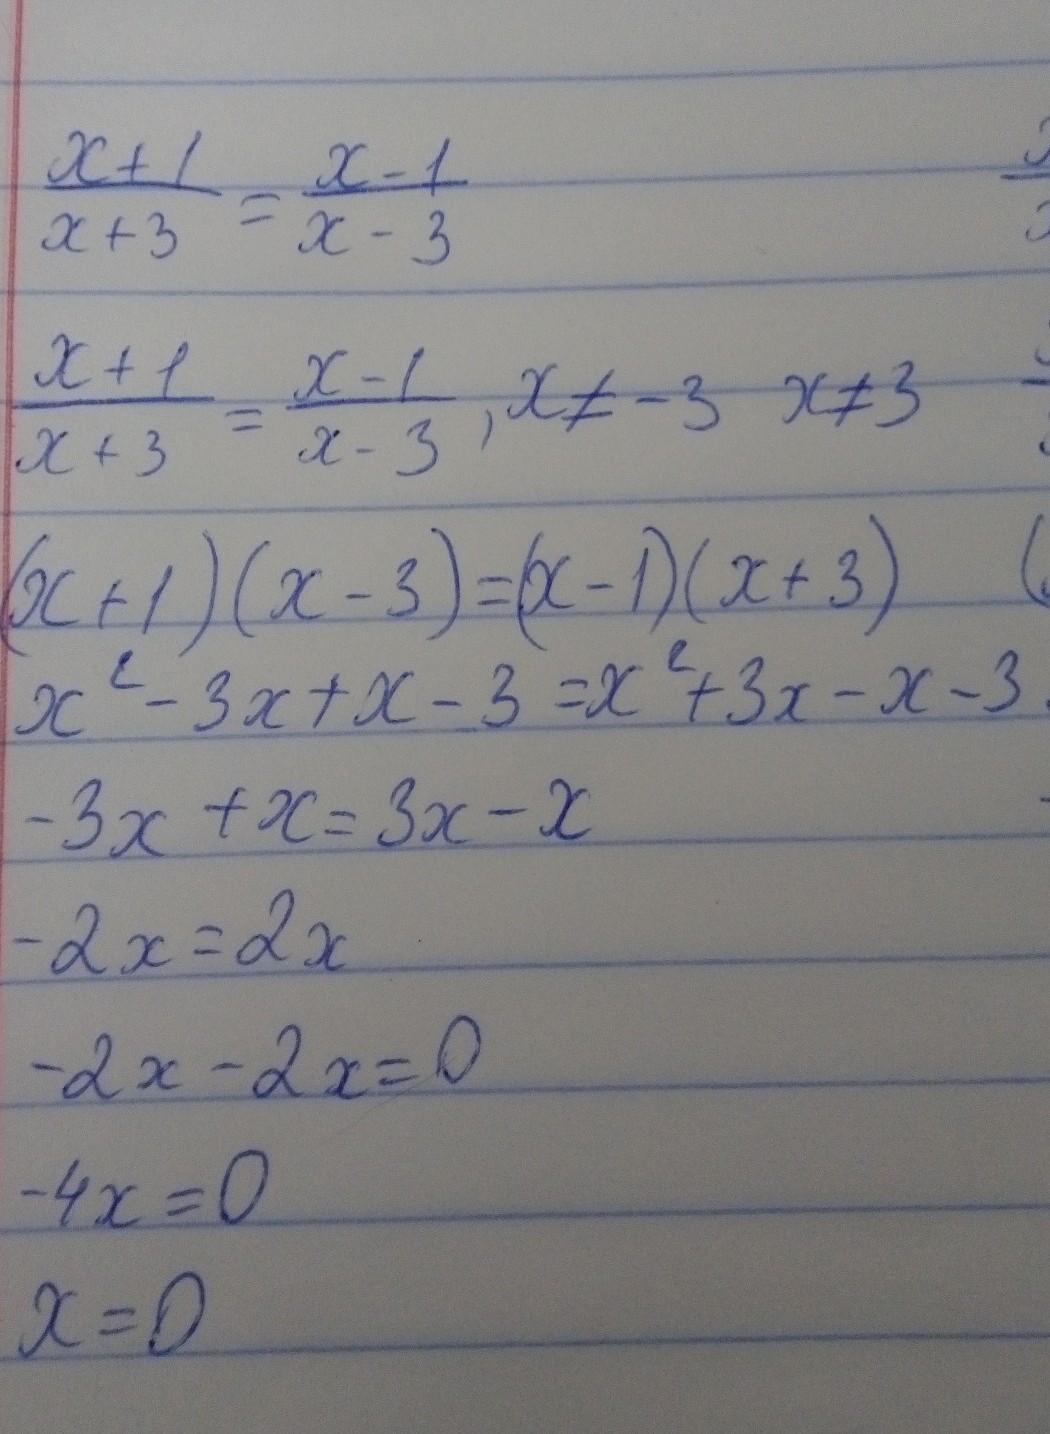 x+1/x+3 = x-1/x-3
x+1/x+3 = x-1/x-3, x≠-3 x≠3
(x+1)(x-3)=(x-1)(x+3)
x²-3x+x-3=x²+3x-x-3
-3x+x=3x-x
-2x=2x
-2x-2x=0
-4x=0
x=0